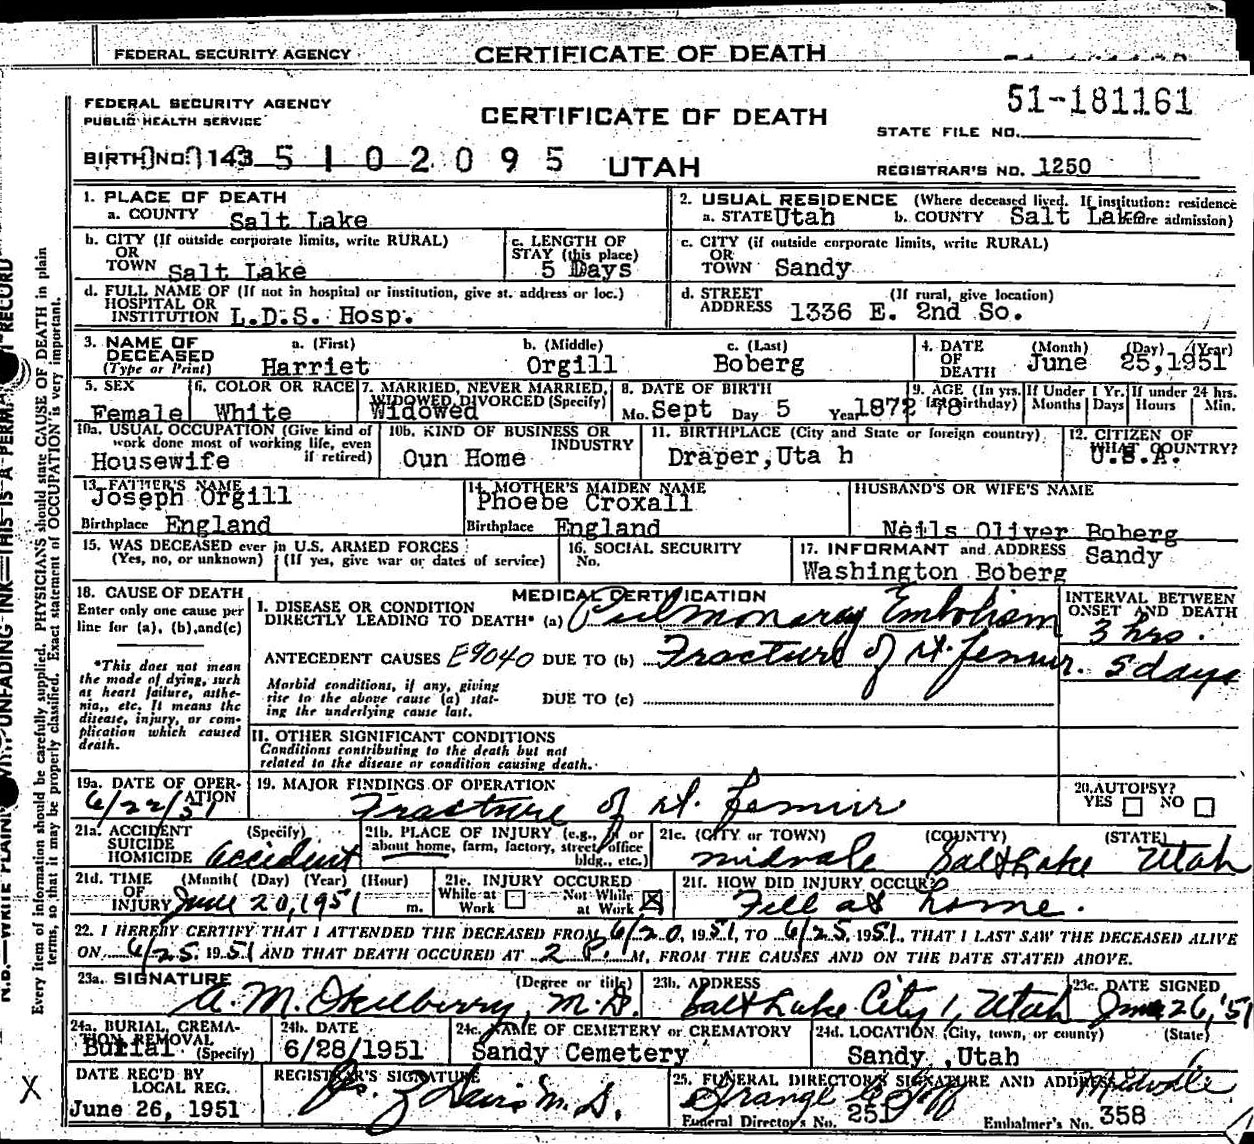 FEDERAL SECURITY AGENCY CERTIFICATE OF DEATH
FEDERAL SECURITY AGENCY
PUBLIC HEALTH SERVICE
CERTIFICATE OF DEATH
51-181161
STATE FILE NO.
BIRTH NO. 143 5 1 0 2 0 9 5 UTAH
REGISTRAR'S NO. 1250
1. PLACE OF DEATH
a. COUNTY Salt Lake
2. USUAL RESIDENCE (Where deceased lived. If institution: residence
a. STATE Utah b. COUNTY Salt Lake admission)
b. CITY (If outside corporate limits, write RURAL)
OR
TOWN Salt Lake
c. LENGTH OF
STAY (this place)
5 Days
c. CITY (if outside corporate limits, write RURAL)
OR
TOWN Sandy
d. FULL NAME OF (If not in hospital or institution, give st. address or loc.)
HOSPITAL OR
INSTITUTION L.D.S. Hosp.
d. STREET (If rural, give location)
ADDRESS 1336 E. 2nd So.
3. NAME OF
DECEASED
(Type or Print)
a. (First) b. (Middle) c. (Last)
Harriet Orgill Boberg
4. DATE (Month) (Day) (Year)
OF
DEATH June 25,1951
5. SEX
Female
6. COLOR OR RACE
White
7. MARRIED, NEVER MARRIED,
WIDOWED, DIVORCED (Specify)
Widowed
8. DATE OF BIRTH
Mo. Sept Day 5 Year 1872
9. AGE (In yrs. last birthday) 78
If Under 1 Yr.
Months Days
If under 24 hrs.
Hours Min.
10a. USUAL OCCUPATION (Give kind of
work done most of working life, even
if retired)
Housewife
10b. KIND OF BUSINESS OR
INDUSTRY
Oun Home
11. BIRTHPLACE (City and State or foreign country)
Draper,Uta h
12. CITIZEN OF
WHAT COUNTRY?
U.S.A.
13. FATHER'S NAME
Joseph Orgill
Birthplace England
14. MOTHER'S MAIDEN NAME
Phoebe Croxall
Birthplace England
HUSBAND'S OR WIFE'S NAME
Neils Oliver Boberg
15. WAS DECEASED ever in U.S. ARMED FORCES
(Yes, no, or unknown) (If yes, give war or dates of service)
16. SOCIAL SECURITY
No.
17. INFORMANT and ADDRESS Sandy
Washington Boberg
18. CAUSE OF DEATH
Enter only one cause per
line for (a), (b),and(c)
*This does not mean
the mode of dying, such
as heart failure, asthe-
nia,, etc. It means the
disease, injury, or com-
plication which caused
death.
MEDICAL CERTIFICATION
I. DISEASE OR CONDITION
DIRECTLY LEADING TO DEATH* (a) Pulmonary Embolism
INTERVAL BETWEEN
ONSET AND DEATH
3 hrs.
ANTECEDENT CAUSES E9040 DUE TO (b) Fracture of rt. femur. 5 days
Morbid conditions, if any, giving
rise to the above cause (a) stat-
ing the underlying cause last.
DUE TO (c)
II. OTHER SIGNIFICANT CONDITIONS
Conditions contributing to the death but not
related to the disease or condition causing death.
19a. DATE OF OPER-
ATION
6/22/51
19. MAJOR FINDINGS OF OPERATION
Fracture of rt. femur
20. AUTOPSY?
YES NO
21a. ACCIDENT (Specify)
SUICIDE
HOMICIDE accident
21b. PLACE OF INJURY (e.g., in or
about home, farm, factory, street, office
bldg., etc.)
21c. (CITY or TOWN) (COUNTY) (STATE)
Midvale Salt Lake Utah
21d. TIME (Month( (Day) (Year) (Hour)
OF
INJURY June 20, 1951 m.
21e. INJURY OCCURED
While at Work Not While at Work
21f. HOW DID INJURY OCCUR?
Fell at home.
22. I HEREBY CERTIFY THAT I ATTENDED THE DECEASED FROM 6/20, 1951, TO 6/25, 1951, THAT I LAST SAW THE DECEASED ALIVE
ON 6/25 1951 AND THAT DEATH OCCURED AT 2 P. M, FROM THE CAUSES AND ON THE DATE STATED ABOVE.
23a. SIGNATURE (Degree or title)
A. M. Okelberry, M.D.
23b. ADDRESS
Salt Lake City 1, Utah
23c. DATE SIGNED
June 26, '51
24a. BURIAL, CREMA-
TION, REMOVAL
Burial (Specify)
24b. DATE
6/28/1951
24c. NAME OF CEMETERY or CREMATORY
Sandy Cemetery
24d. LOCATION (City, town, or county) (State)
Sandy ,Utah
DATE REC'D BY
LOCAL REG.
June 26, 1951
REGISTRAR'S SIGNATURE
M.D.
25. FUNERAL DIRECTOR'S SIGNATURE AND ADDRESS Midvale
Funeral Director's No. 251 Embalmer's No. 358
X
Every item of information should be carefully supplied. PHYSICIANS should state CAUSE OF DEATH in plain
terms, so that it may be properly classified. Exact statement of OCCUPATION is very important.